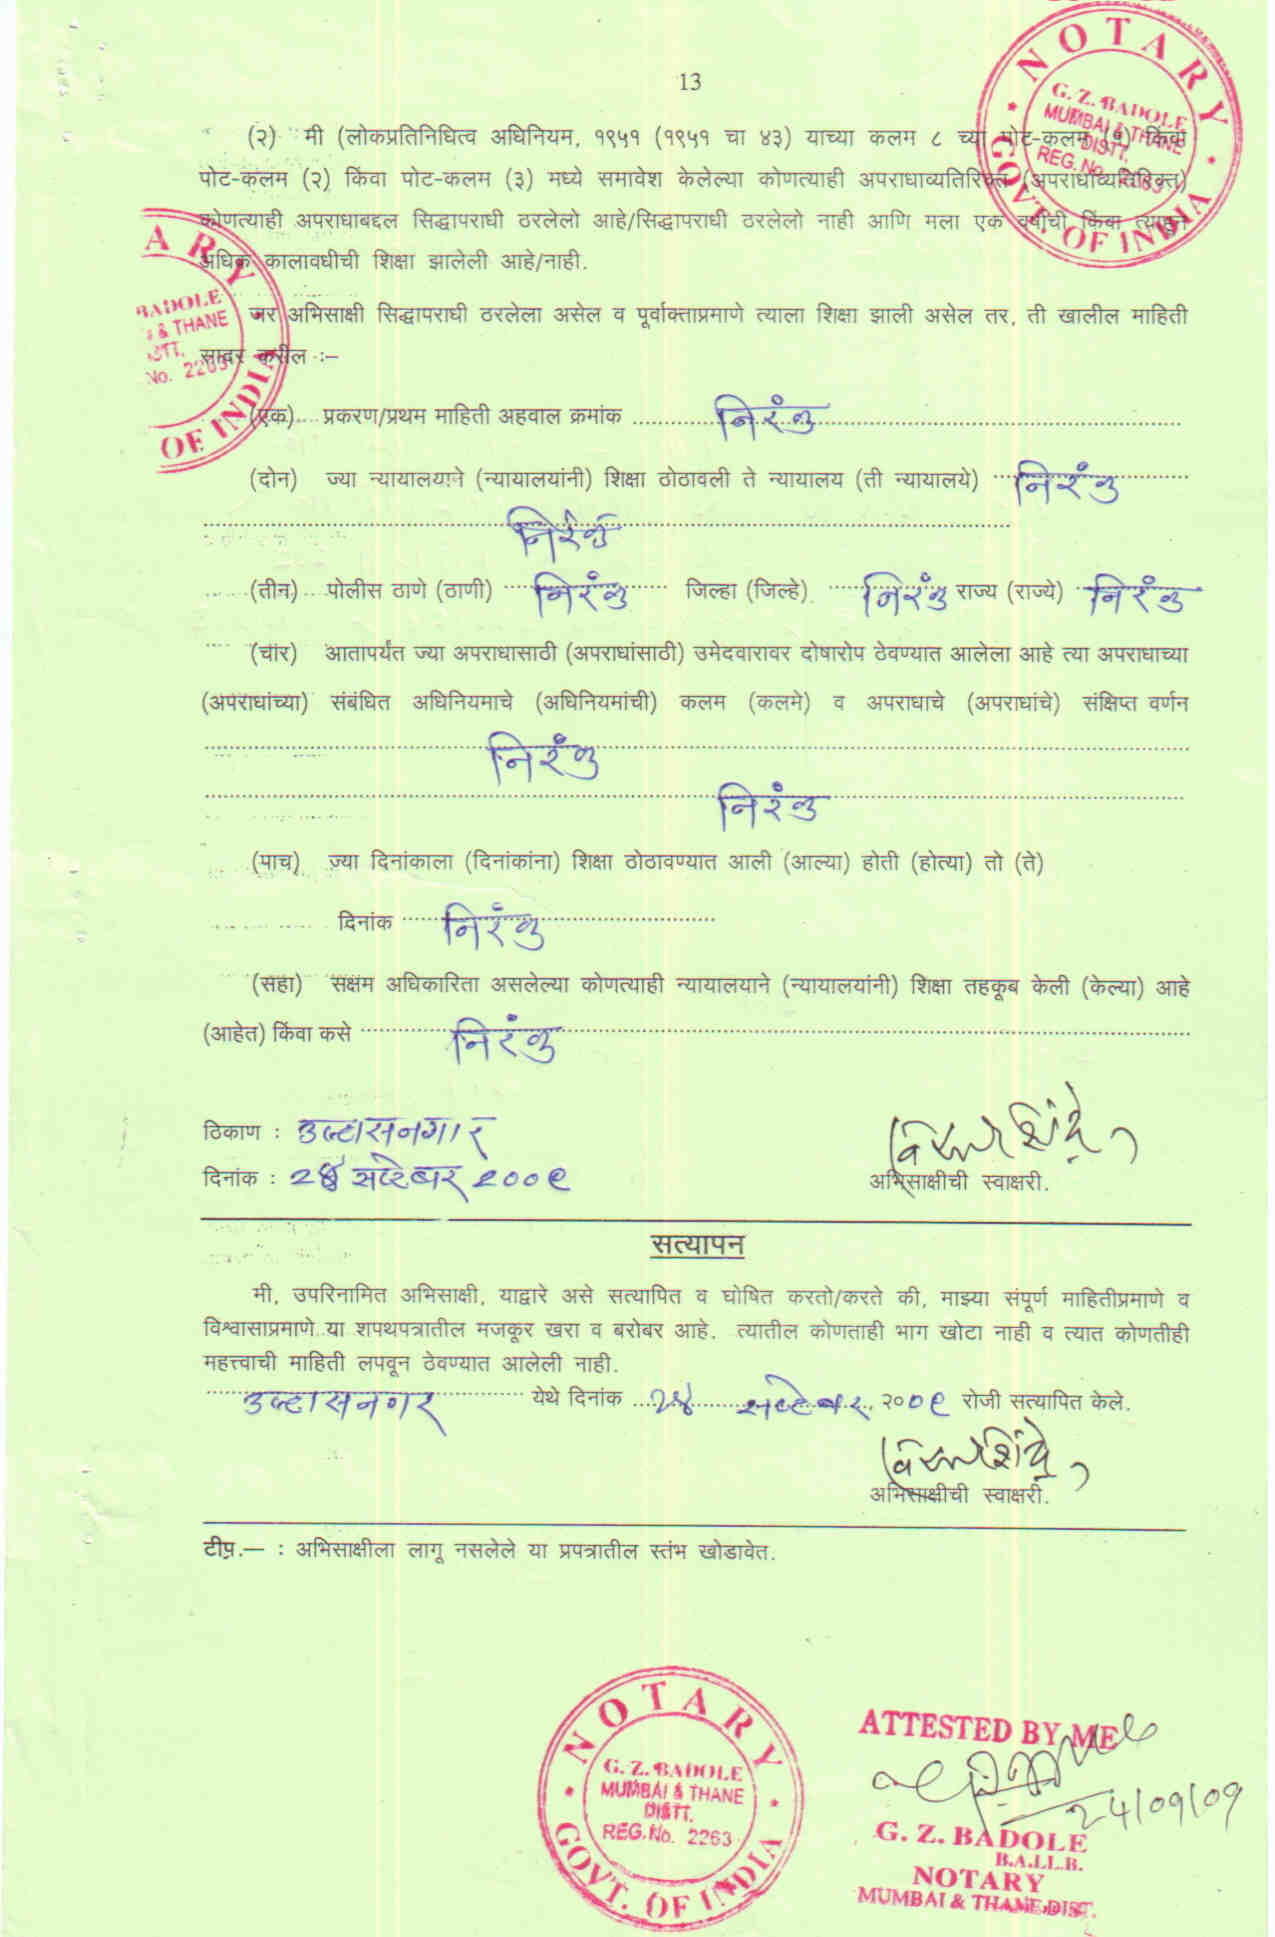 13
NOTARY
G. Z. BADOLE
MUMBAI & THANE
DISTT.
REG. No. 2263
GOVT. OF INDIA
(२) मी (लोकप्रतिनिधित्व अधिनियम, १९५१ (१९५१ चा ४३) याच्या कलम ८ च्या पोट-कलम (१) किंवा
पोट-कलम (२) किंवा पोट-कलम (३) मध्ये समावेश केलेल्या कोणत्याही अपराधाव्यतिरिक्त (अपराधांव्यतिरिक्त)
कोणत्याही अपराधाबद्दल सिद्धापराधी ठरलेलो आहे/सिद्धापराधी ठरलेलो नाही आणि मला एक वर्षाची किंवा त्याहून
अधिक कालावधीची शिक्षा झालेली आहे/नाही.
ARY
BADOLE
& THANE
STT.
No. 2263
OF INDIA
जर अभिसाक्षी सिद्धापराधी ठरलेला असेल व पूर्वोक्ताप्रमाणे त्याला शिक्षा झाली असेल तर, ती खालील माहिती
सादर करील :—
(एक) प्रकरण/प्रथम माहिती अहवाल क्रमांक निरंक
(दोन) ज्या न्यायालयाने (न्यायालयांनी) शिक्षा ठोठावली ते न्यायालय (ती न्यायालये) निरंक
निरंक
(तीन) पोलीस ठाणे (ठाणी) निरंक जिल्हा (जिल्हे) निरंक राज्य (राज्ये) निरंक
(चार) आतापर्यंत ज्या अपराधासाठी (अपराधांसाठी) उमेदवारावर दोषारोप ठेवण्यात आलेला आहे त्या अपराधाच्या
(अपराधांच्या) संबंधित अधिनियमाचे (अधिनियमांची) कलम (कलमे) व अपराधाचे (अपराधांचे) संक्षिप्त वर्णन
निरंक
निरंक
(पाच) ज्या दिनांकाला (दिनांकांना) शिक्षा ठोठावण्यात आली (आल्या) होती (होत्या) तो (ते)
दिनांक निरंक
(सहा) सक्षम अधिकारिता असलेल्या कोणत्याही न्यायालयाने (न्यायालयांनी) शिक्षा तहकूब केली (केल्या) आहे
(आहेत) किंवा कसे निरंक
ठिकाण : उल्हासनगर
दिनांक : २४ सप्टेंबर २००९
अभिसाक्षीची स्वाक्षरी.
सत्यापन
मी, उपरिनामित अभिसाक्षी, याद्वारे असे सत्यापित व घोषित करतो/करते की, माझ्या संपूर्ण माहितीप्रमाणे व
विश्वासाप्रमाणे या शपथपत्रातील मजकूर खरा व बरोबर आहे. त्यातील कोणताही भाग खोटा नाही व त्यात कोणतीही
महत्त्वाची माहिती लपवून ठेवण्यात आलेली नाही.
उल्हासनगर येथे दिनांक २४ सप्टेंबर, २००९ रोजी सत्यापित केले.
अभिसाक्षीची स्वाक्षरी.
टीप.— : अभिसाक्षीला लागू नसलेले या प्रपत्रातील स्तंभ खोडावेत.
NOTARY
G. Z. BADOLE
MUMBAI & THANE
DISTT.
REG. No. 2263
GOVT. OF INDIA
ATTESTED BY ME
24/09/09
G. Z. BADOLE
B.A.LL.B.
NOTARY
MUMBAI & THANE DIST.